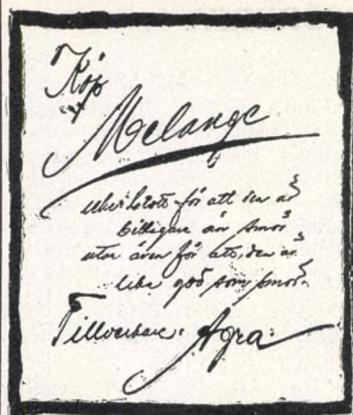 Köp
Melange
icke blott för att den är
billigare än smör
utan även för att den är
lika god som smör.
Tillverkare: Agra